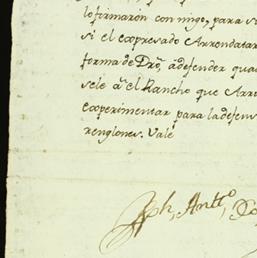 lo firmaron con migo, para
si el expresado Arrendatar
forma de Dro, adefender qua
sele a el Rancho que Arre
experimentar para ladefens
renglones. Vale
Jph, Antto,